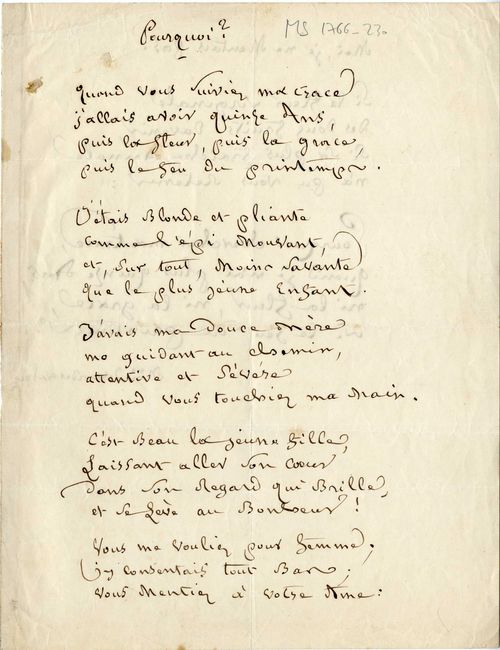 Pourquoi ?
MS 1766-230
quand vous suiviez ma trace
j'allais avoir quinze Ans,
puis la fleur, puis la grâce,
puis le feu du printemps.
J'étais Blonde et pliante
comme l'épi Mouvant,
et, sur tout, Moins savante
que le plus jeune Enfant.
J'avais ma Douce Mère
me guidant au chemin,
attentive et sévère
quand vous touchiez ma Main.
C'est Beau la jeune fille,
Laissant aller son cœur
Dans son Regard qui Brille,
et se Lève au Bonheur !
Vous me vouliez pour femme,
j'y consentais tout Bas ;
Vous Mentiez à votre Ame :